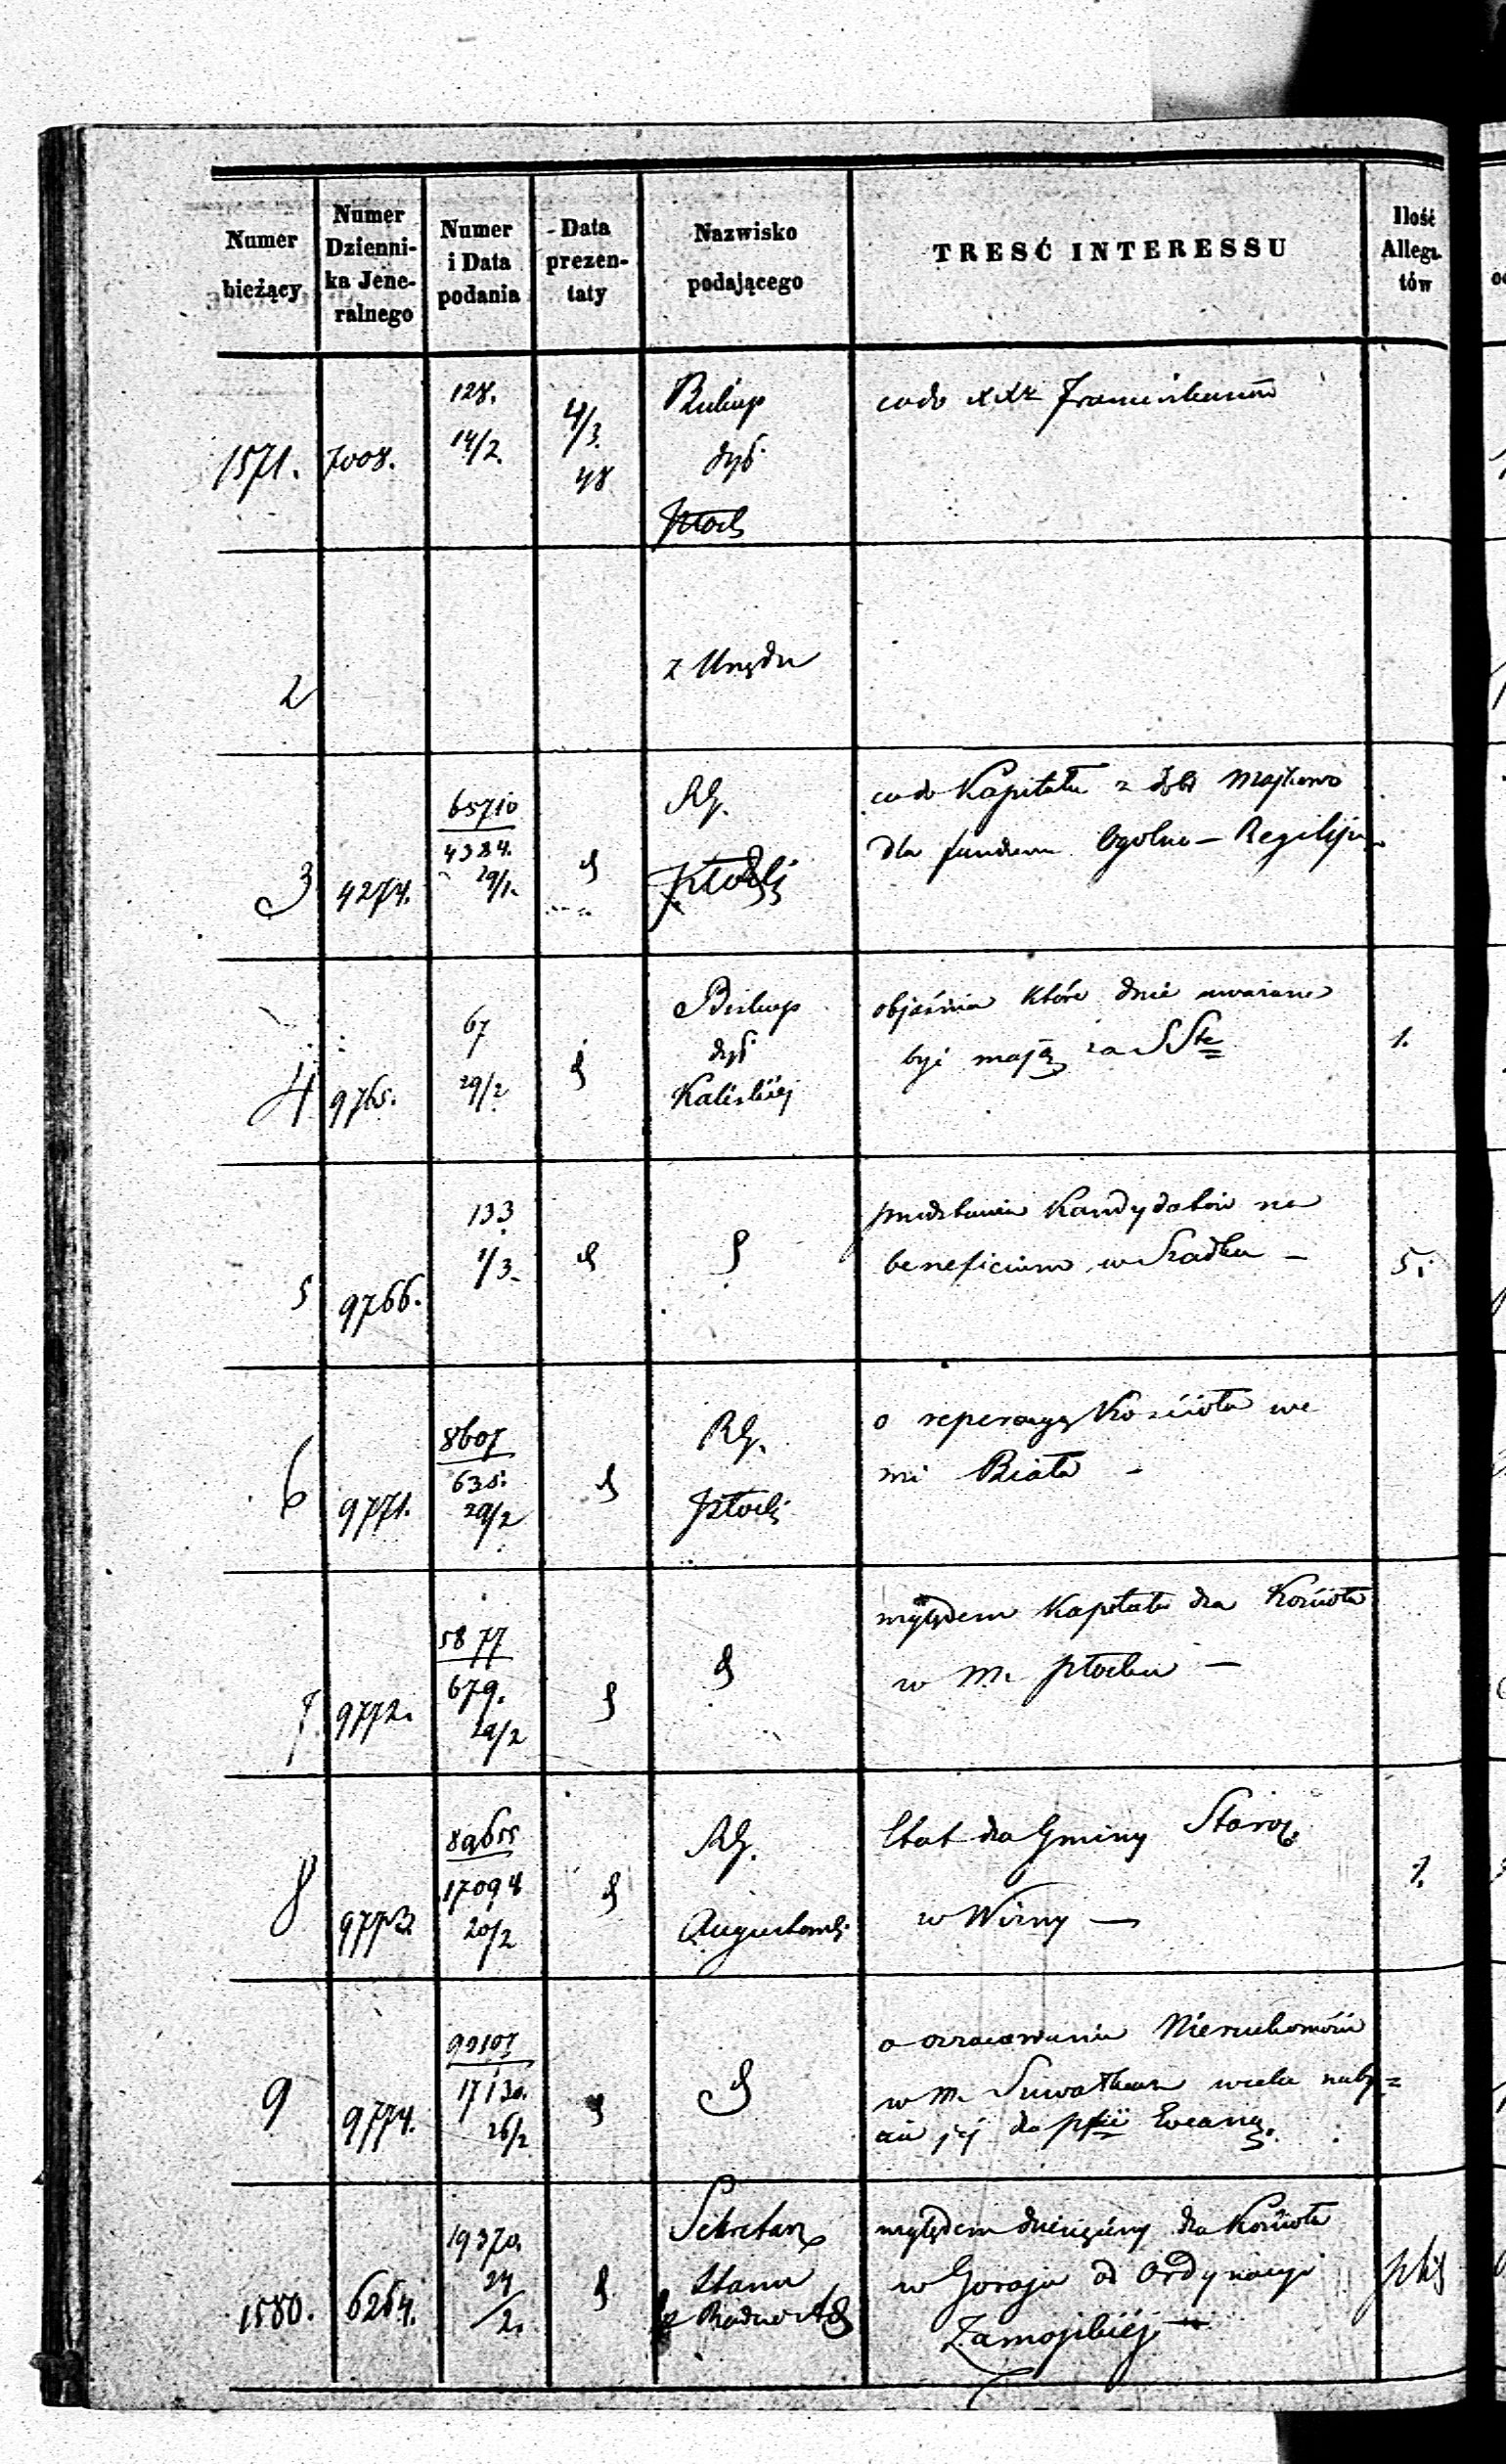 Numer
bieżący
Numer
Dzienni-
ka Jene-
ralnego
Numer
i Data
podania
Data
prezen-
taty
Nazwisko
podającego
TRESĆ INTERESSU
Ilość
Allega-
tów
1571.
7008.
128.
14/2.
4/3.
48
Biskup
dyó
Płock
co do XXdz Franciszkanów
2
z Urzędu
3
4274.
65710
4384.
29/1.
RG.
Płocki
co do Kapitału z dóbr Majkowo
dla funduszu Ogólno-Religijn.
4
9765.
67
29/2
Biskup
dyó
Kaliskiej
objaśnia które dnie uważane
być mają za SSte
1.
5
9766.
133
1/3.
przedstawia Kandydatów na
beneficium w Szadku -
5.
6
9771.
8607
635.
29/2
RG.
Płocki
o reperacyą Kościoła we
wsi Biała -
7
9772.
5877
679.
29/2
względem Kapitału dla Kościoła
w M. Płocku -
8
9773.
89655
17094
20/2
RG.
Augustowski
Etat dla Gminy Staroz.
w Wizny -
9
9774.
90107
17130.
26/2
o oszacowanie Nieruchomości
w M. Suwałkach wcelu naby=
cia jej dla pfii Ewang.
1580.
6264.
19370.
24
/2.
Sekretarz
Stanu
względem dziesięciny dla Kościoła
w Goraju od Ordynacyi
Zamojskiéj
plik